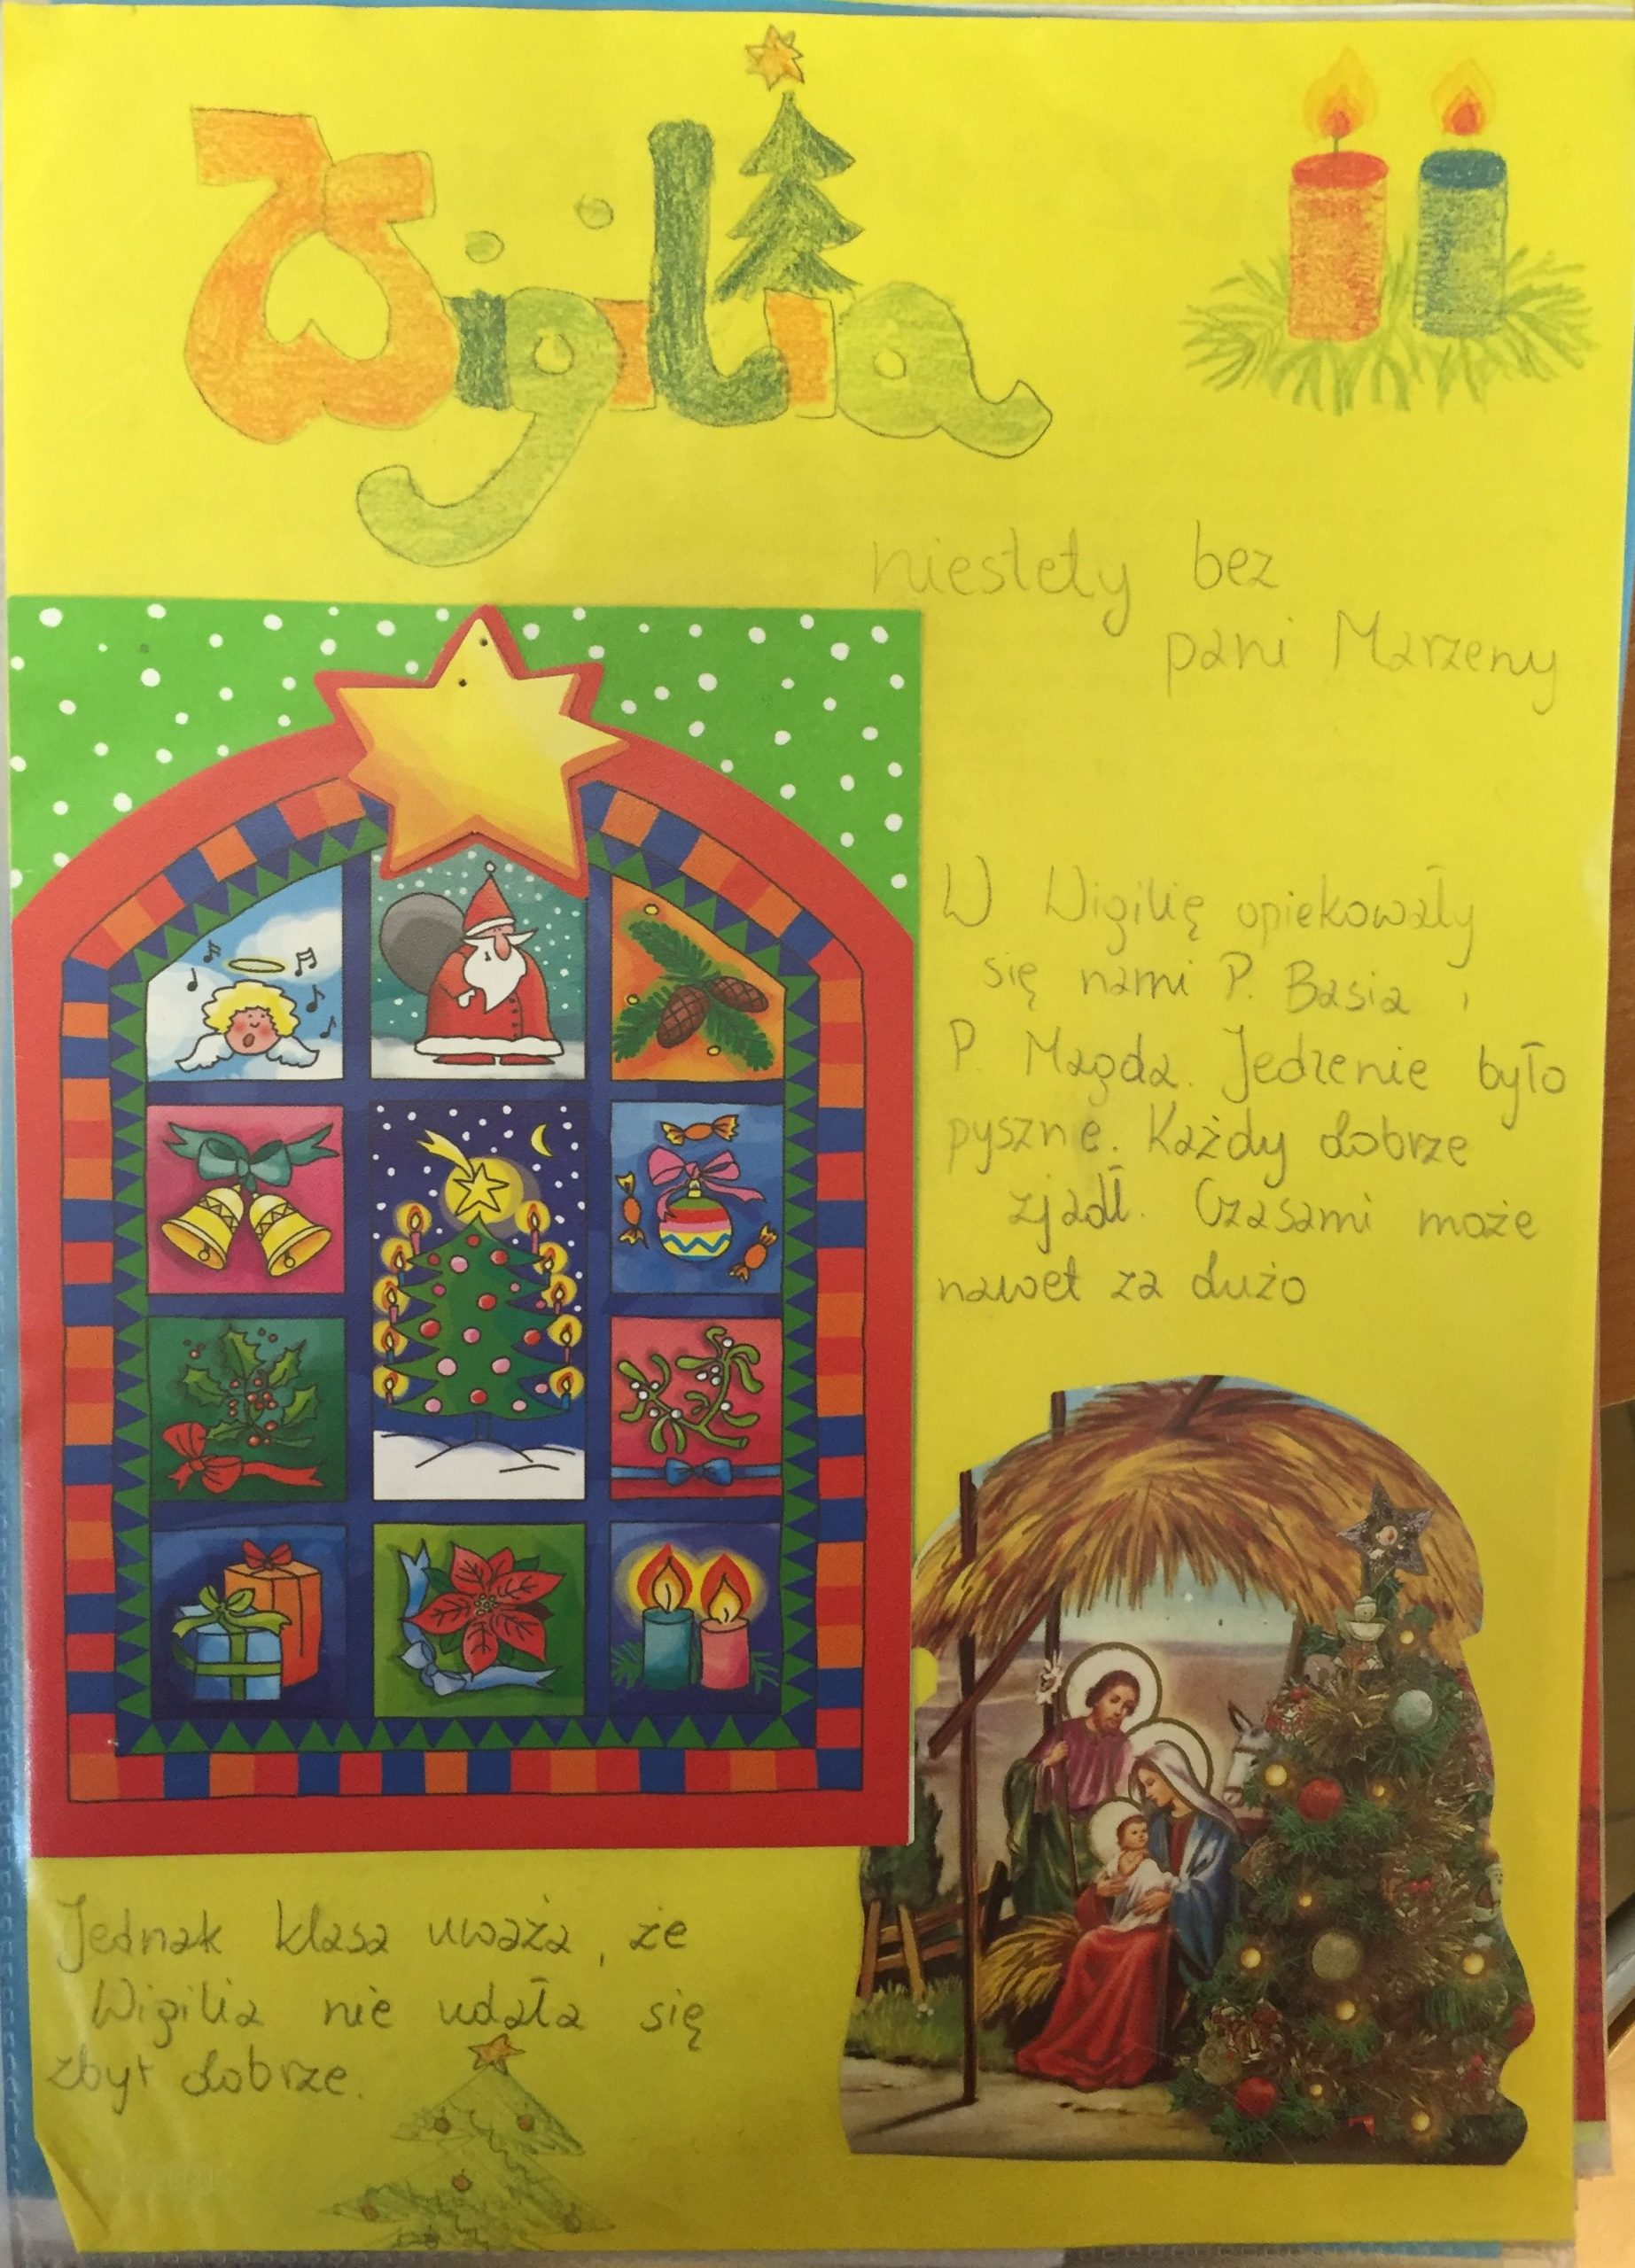 Wigilia
niestety bez
pani Marzeny
W Wigilię opiekowały
się nami P. Basia i
P. Magda. Jedzenie było
pyszne. Każdy dobrze
zjadł. Czasami może
nawet za dużo
Jednak klasa uważa, że
Wigilia nie udała się
zbyt dobrze.